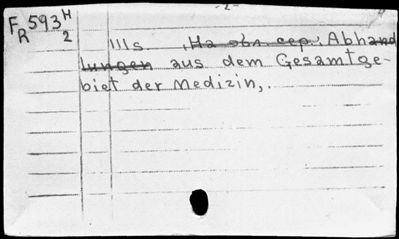 - 2 -
F 593 H
R 2
Ills ,На обл. сер.: Abhand
lungen aus dem Gesamtge-
biet der Medizin,.